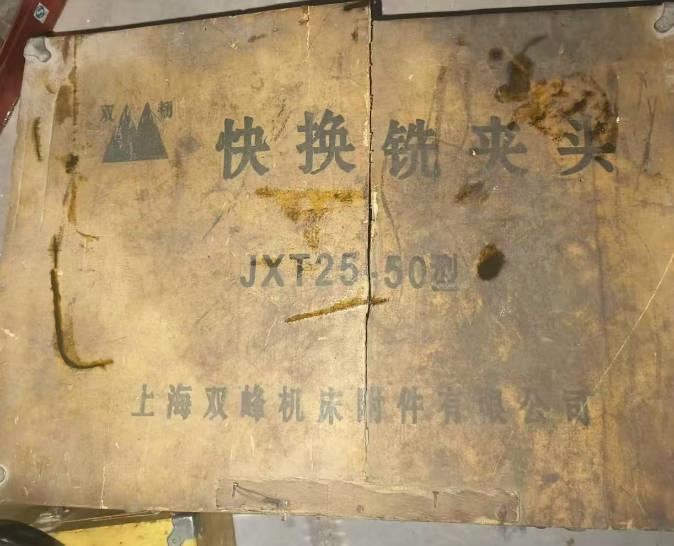 快换铣夹头
JXT25-50型
上海双峰机床附件有限公司